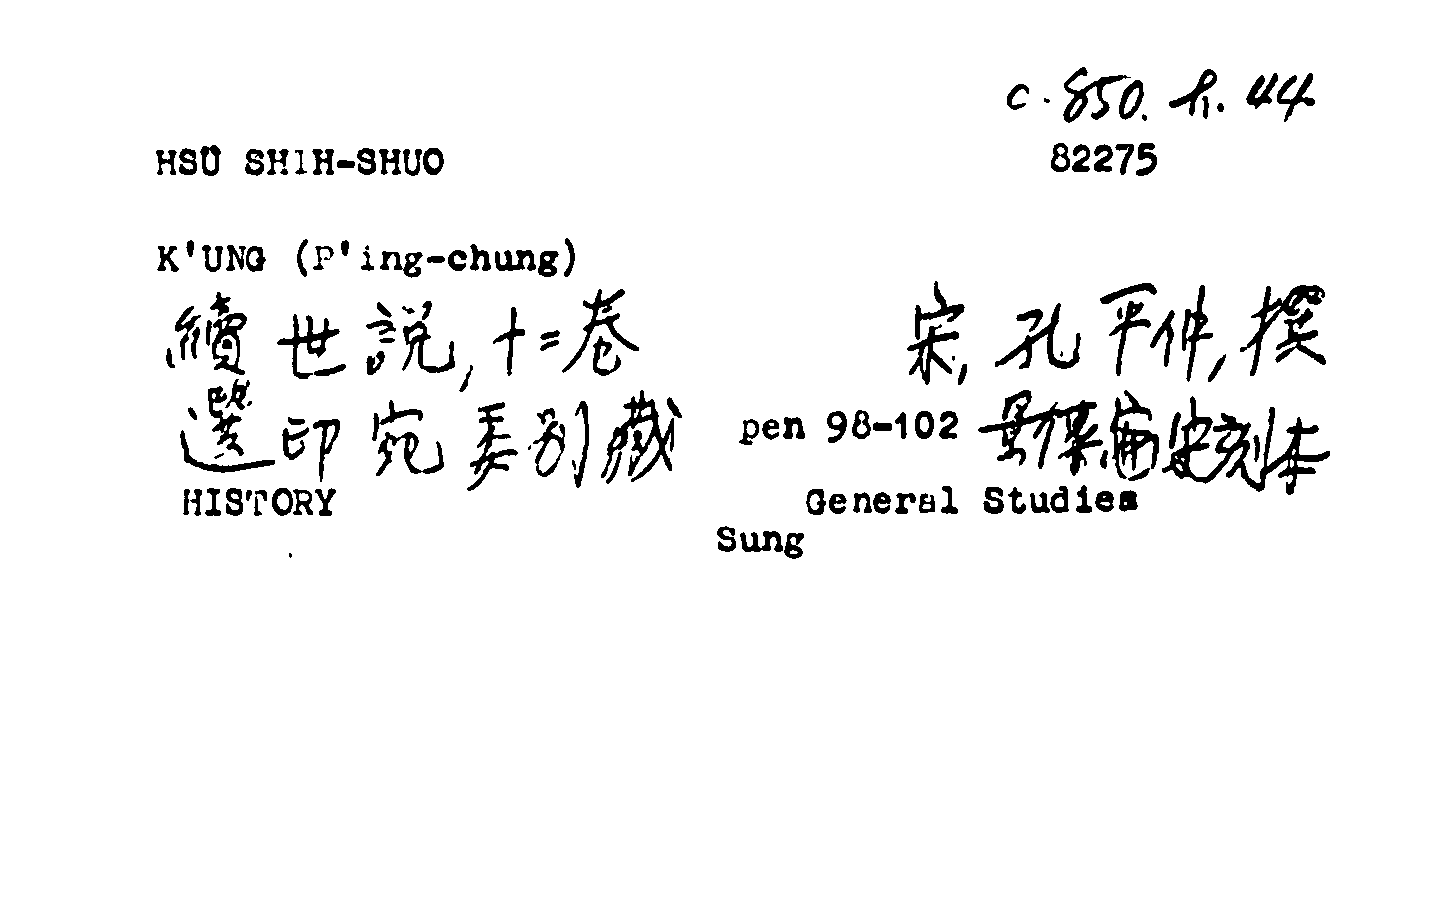 c. 850. h. 44
HSÜ SHIH-SHUO 82275
K'UNG (P'ing-chung)
續世說,十二卷 宋,孔平仲,撰
選印宛委別藏 pen 98-102 景 刻本
HISTORY General Studies
Sung